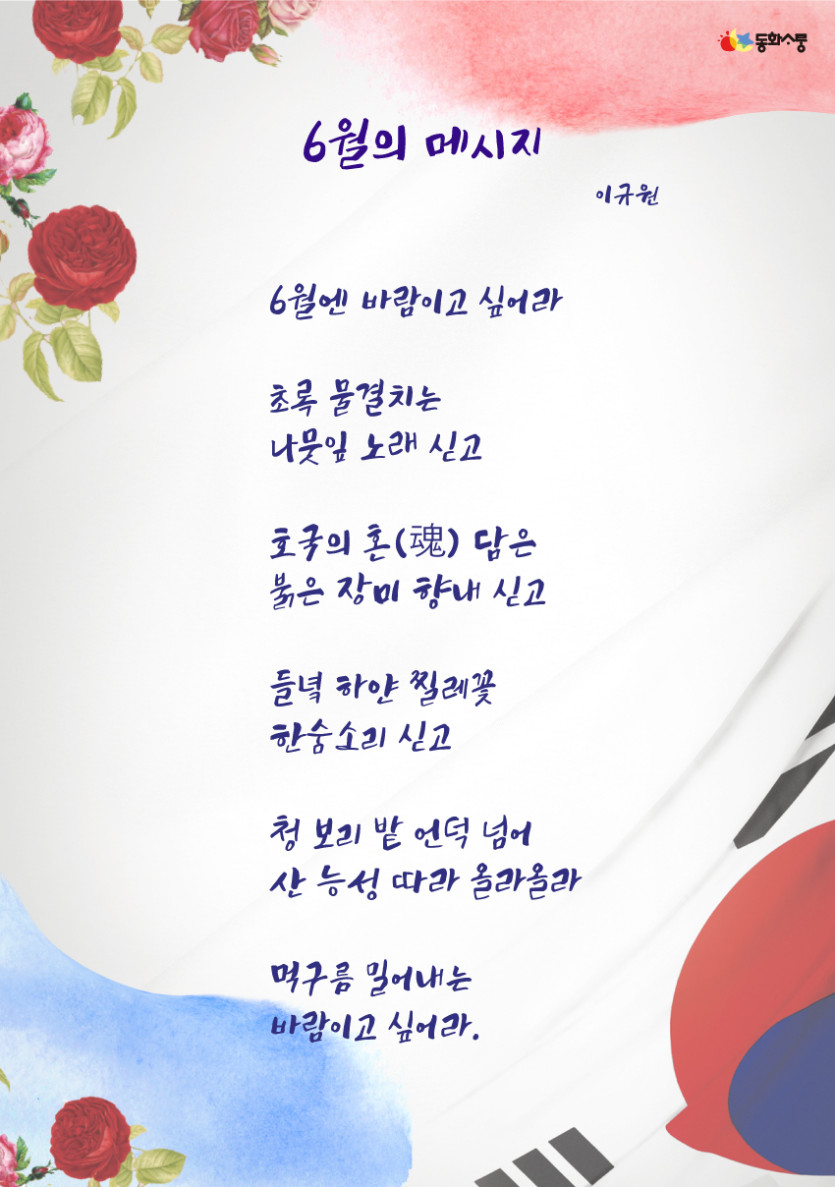 동화소풍
6월의 메시지
이규원
6월엔 바람이고 싶어라
초록 물결치는
나뭇잎 노래 싣고
호국의 혼(魂) 담은
붉은 장미 향내 싣고
들녘 하얀 찔레꽃
한숨소리 싣고
청 보리 밭 언덕 넘어
산 능성 따라 올라올라
먹구름 밀어내는
바람이고 싶어라.